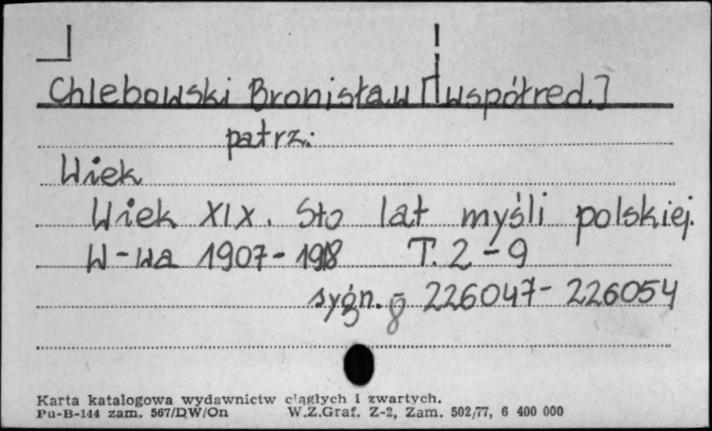 Chlebowski Bronisław [współred.]
patrz:
Wiek
Wiek XIX. Sto lat myśli polskiej.
W-wa 1907-1918 T. 2-9
sygn. - 226047- 226054
8
Karta katalogowa wydawnictw ciągłych i zwartych.
Pu-B-144 zam. 567/DW/On W.Z.Graf. Z-2, Zam. 502/77, 6 400 000